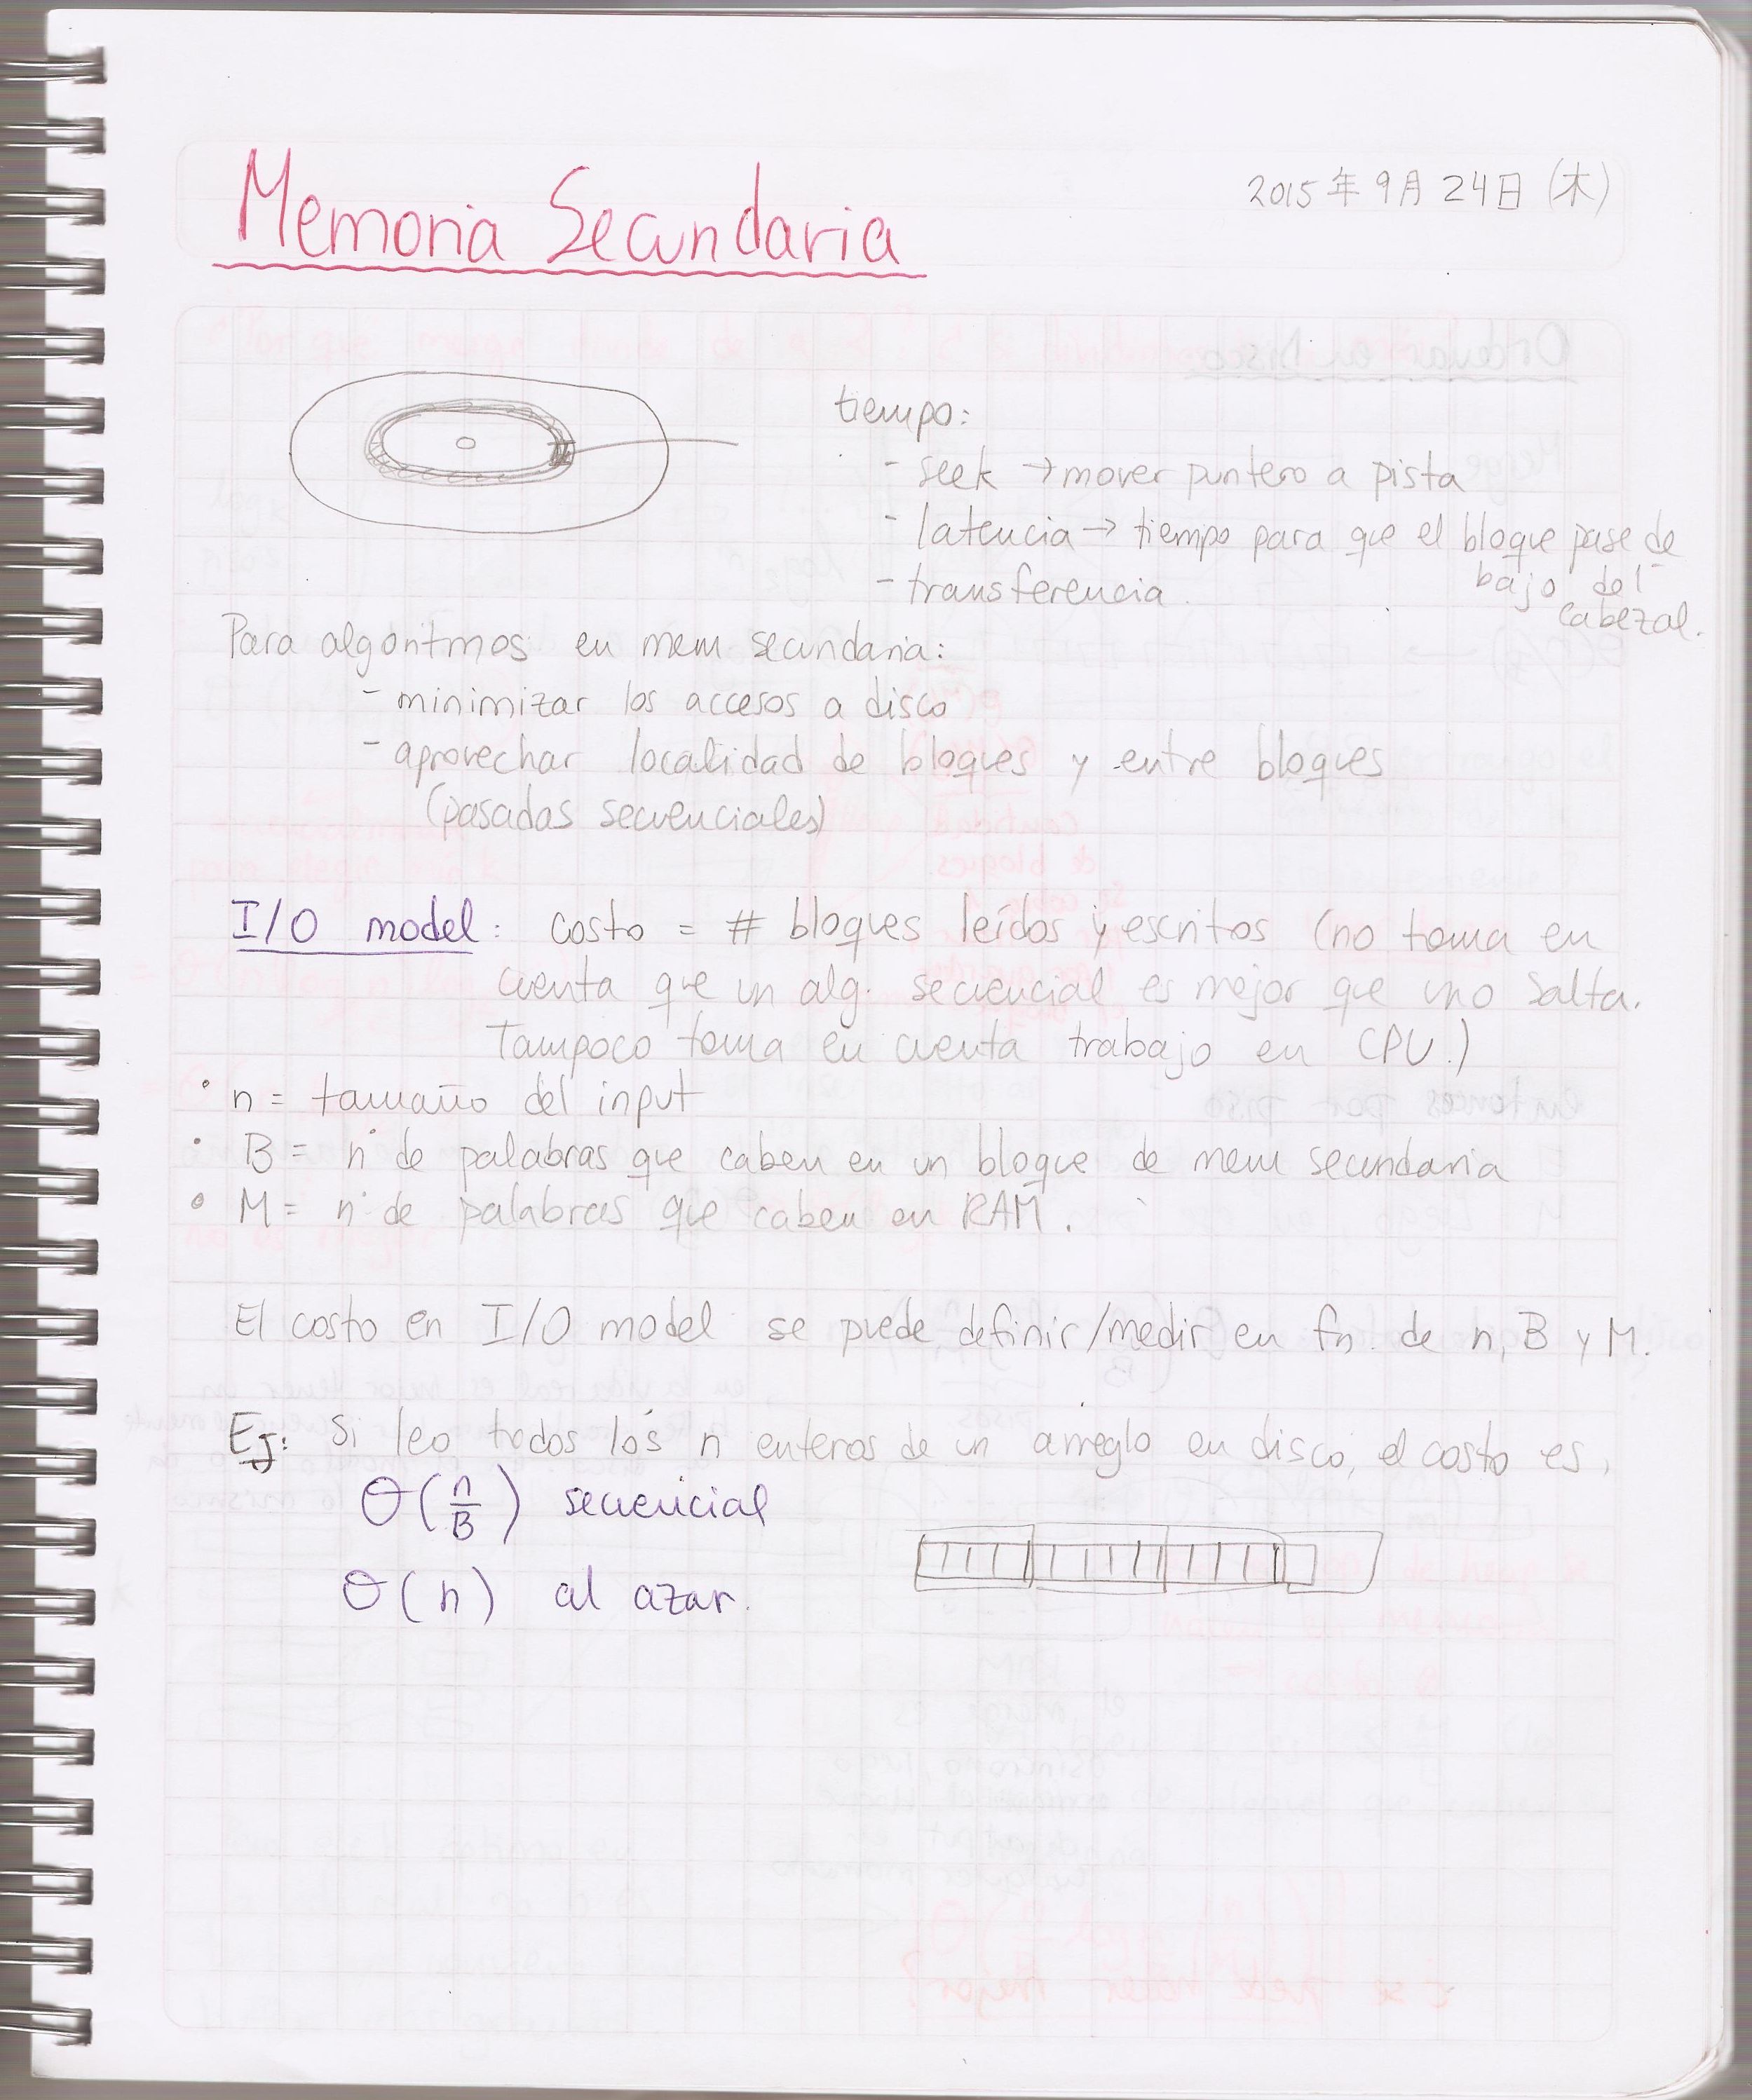 Memoria Secundaria
2015年9月24日 (木)
tiempo:
- seek → mover puntero a pista
- latencia → tiempo para que el bloque pase de
bajo del
cabezal.
- transferencia.
Para algoritmos en mem secundaria:
- minimizar los accesos a disco
- aprovechar localidad de bloques y entre bloques
(pasadas secuenciales)
I/O model: costo = # bloques leídos y escritos (no toma en
cuenta que un alg. secuencial es mejor que uno salta.
Tampoco toma en cuenta trabajo en CPU.)
• n = tamaño del input
• B = n° de palabras que caben en un bloque de mem secundaria
• M = n° de palabras que caben en RAM.
El costo en I/O model se puede definir/medir en fn. de n, B y M.
Ej: Si leo todos los n enteros de un arreglo en disco, el costo es,
Θ(n/B) secuencial
Θ(n) al azar.